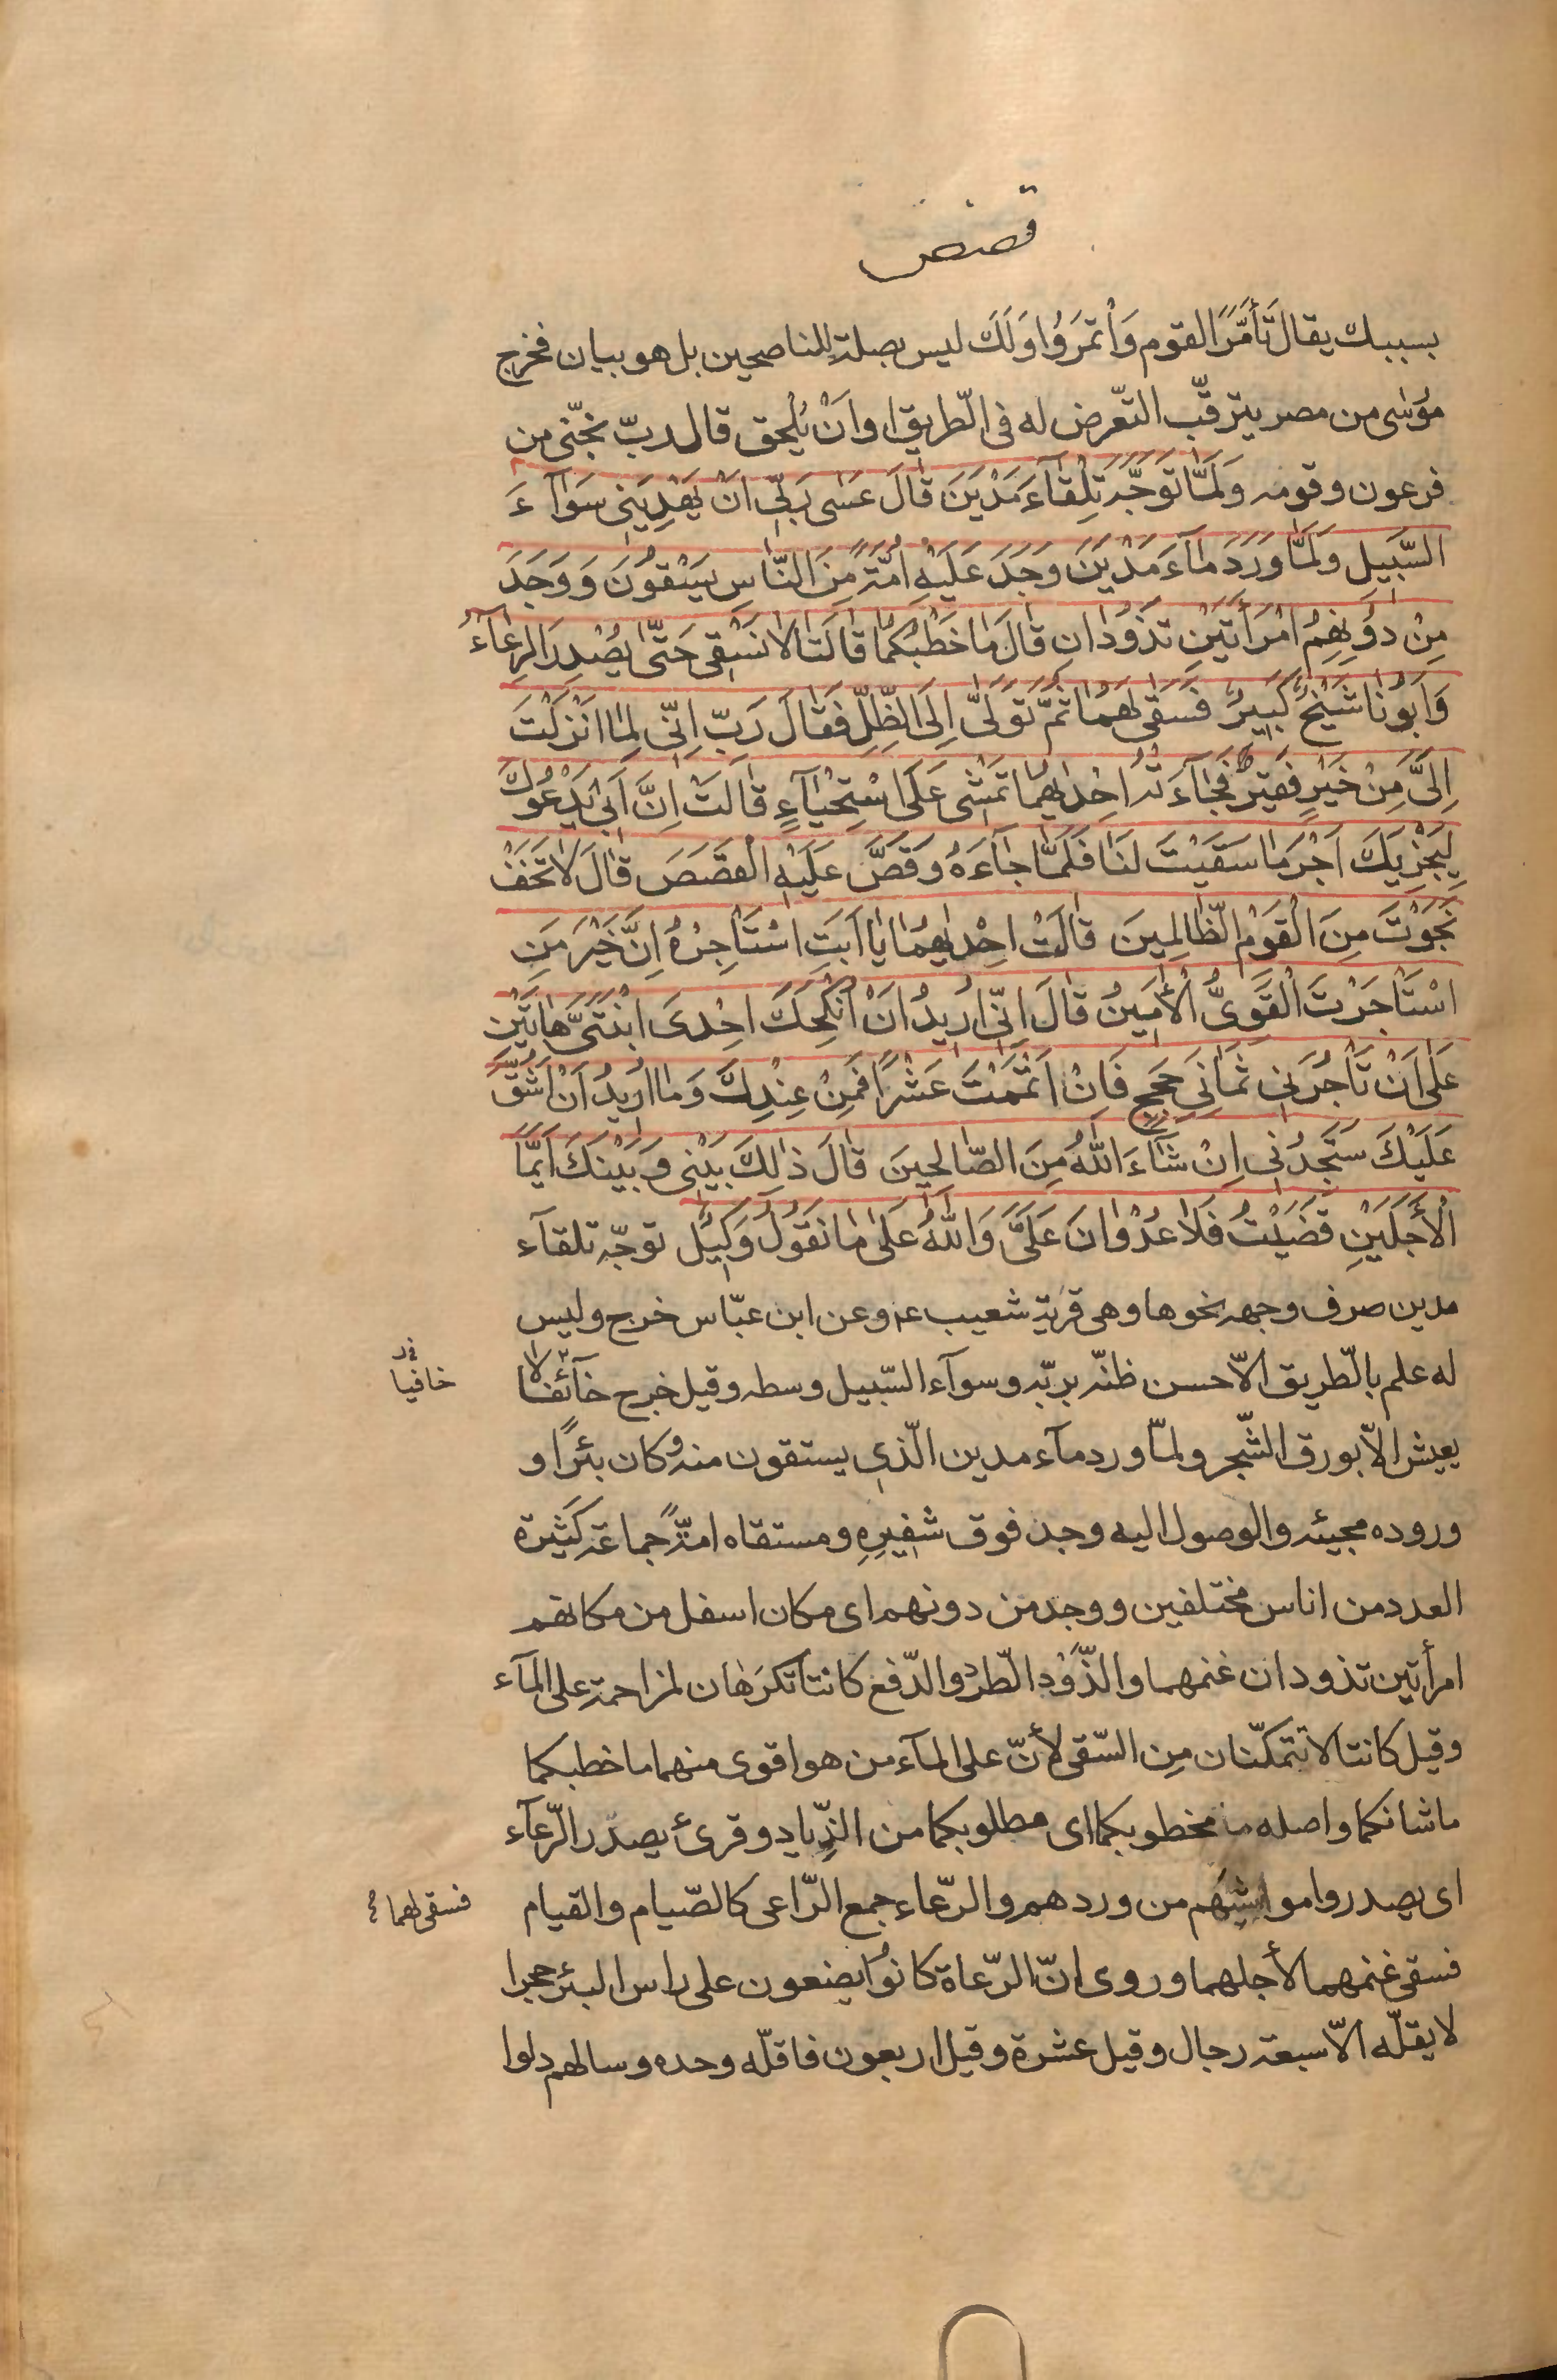 قصص
بسببك يقال تَأَمَّرَ القوم وَأْتَمَرَوُا وَلَكَ ليس بصلةٍ للناصحين بل هو بيان فخرج
مُوسٰى من مصر يترقّب التّعرض له فى الطّريق او اَنْ يُلحق قال ربّ نجّنى من
فرعون وقومه وَلَمَّا تَوَجَّهَ تِلْقٰآءَ مَدْيَنَ قٰالَ عَسٰى رَبّى اَنْ يَهْدِيَنِى سَوٰآءَ
السَّبيلِ وَلَمَّا وَرَدَ مٰآءَ مَدْيَنَ وَجَدَ عَلَيْهِ اُمَّةً مِنَ النّٰاسِ يَسْقُونَ وَ وَجَدَ
مِنْ دُونِهِمُ امْرَأَتَيْنِ تَذُودٰانِ قٰالَ مٰا خَطْبُكُمٰا قٰالَتٰا لاٰ نَسْقِى حَتّٰى يُصْدِرَ الرِّعٰآءُ
وَاَبُونٰا شَيْخٌ كَبيرٌ فَسَقٰى لَهُمٰا ثُمَّ تَوَلّٰى اِلَى الظِّلِّ فَقٰالَ رَبِّ اِنّى لِمٰا اَنْزَلْتَ
اِلَىَّ مِنْ خَيْرٍ فَقيرٌ فَجٰآءَتْهُ اِحْدٰيهُمٰا تَمْشى عَلَى اسْتِحْيٰآءٍ قٰالَتْ اِنَّ اَبى يَدْعُوكَ
لِيَجْزِيَكَ اَجْرَ مٰا سَقَيْتَ لَنٰا فَلَمّٰا جٰآءَهُ وَقَصَّ عَلَيْهِ الْقَصَصَ قٰالَ لاٰ تَخَفْ
نَجَوْتَ مِنَ الْقَوْمِ الظّٰالِمينَ قٰالَتْ اِحْدٰيهُمٰا يٰا اَبَتِ اسْتَاْجِرْهُ اِنَّ خَيْرَ مَنِ
اسْتَاْجَرْتَ الْقَوِىُّ الْأَمينُ قٰالَ اِنّى اُريدُ اَنْ اُنْكِحَكَ اِحْدَى ابْنَتَىَّ هٰاتَيْنِ
عَلٰى اَنْ تَاْجُرَنى ثَمٰانِىَ حِجَجٍ فَاِنْ اَتْمَمْتَ عَشْرًا فَمِنْ عِنْدِكَ وَمٰا اُريدُ اَنْ اَشُقَّ
عَلَيْكَ سَتَجِدُنى اِنْ شٰآءَ اللّٰهُ مِنَ الصّٰالِحينَ قٰالَ ذٰلِكَ بَيْنى وَبَيْنَكَ اَيَّمَا
الْأَجَلَيْنِ قَضَيْتُ فَلاٰ عُدْوٰانَ عَلَىَّ وَاللّٰهُ عَلٰى مٰا نَقُولُ وَكيلٌ توجّه تلقآء
مدين صرف وجهه نحوها وهى قرية شعيب ع وعن ابن عبّاس خرج وليس
له علم بالطّريق الاّ حسن ظنّه بربّه وسوآء السّبيل وسطه وقيل خرج خآئفا لا
خافيا
يعيش الاّ بورق الشّجر ولمّا ورد مآء مدين الّذى يستقون منه وكان بئرًا و
وروده مجيئه والوصول اليه وجد فوق شفيرِهِ ومستقاه امّةً جماعة كثيرة
العدد من اناس مختلفين ووجد من دونهم اى مكان اسفل من مكانهم
امرأتين تذودان غنمهما والذَّوْد الطّرد والدّفع كانتا تكرَهٰان لمزاحمة على المآء
وقيل كانتا لا تتمكّنان مِن السّقى لأنّ على المآء من هو اقوى منهما ما خطبكما
ما شانكما واصله ما مخطوبكما اى مطلوبكما من الذِّياد وقرئ يصدر الرّعآء
اى يصدروا مواشيَهم من وردهم والرّعاء جمع الرّاعى كالصّيام والقيام
فسقى لهما
فسقى غنمهما لأجلهما وروى انّ الرّعاة كانوُا يضعون على راس البئر حجرا
لا يقلّه الاّ سبعة رجال وقيل عشرة وقيل اربعون فاقلّه وحده وسالهم دلوا